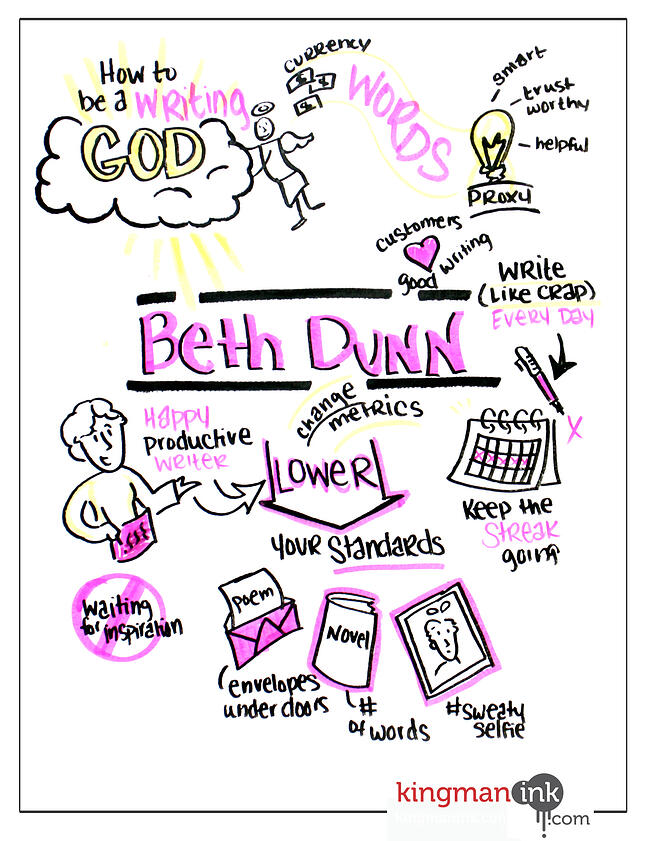 How to
be a Writing
GOD
CURRENCY
$ $
$
WORDS
smart
trust
worthy
helpful
PROXY
customers
good writing
Write
(Like CRAP)
EVERY DAY
Beth DUNN
change
METRICS
HAPPY
Productive
WRITER
LOWER
YOUR Standards
X
XXXXX
Keep the
STREAK
going
Waiting
for inspiration
Poem
envelopes
under doors
Novel
#
of words
#sweaty
selfie
kingmanink
.com